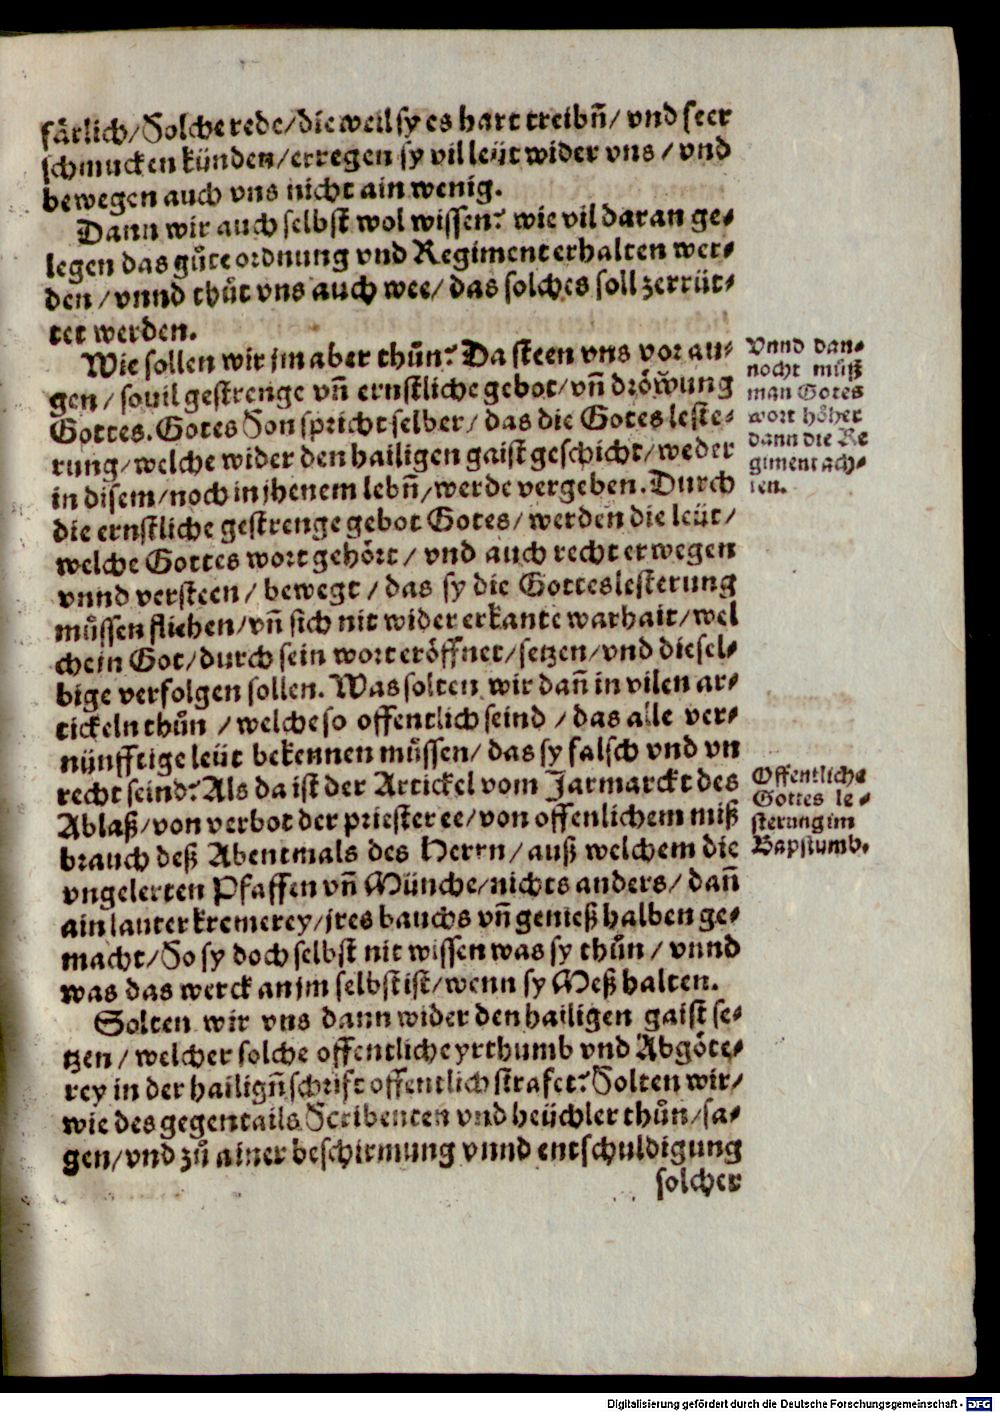 fårlich/Solche rede/die weil sy es hart treibñ/ vnd seer
schmucken künden/erregen sy vil leüt wider vns / vnd
bewegen auch vns nicht ain wenig.
Dann wir auch selbst wol wissen? wie vil daran ge⸗
legen das gůte ordnung vnd Regiment erhalten wer⸗
den / vnnd thůt vns auch wee/ das solches soll zerrüt⸗
tet werden.
Wie sollen wir jm aber thůn? Da steen vns vor au⸗
gen / souil gestrenge vñ ernstliche gebot/ vñ dröwung
Gottes. Gotes Son spricht selber/ das die Gotes leste⸗
rung/ welche wider den hailigen gaist geschicht/ weder
in disem/ noch in jhenem lebñ/ werde vergeben. Durch
die ernstliche gestrenge gebot Gotes/ werden die leüt/
welche Gottes wort gehört/ vnd auch recht erwegen
vnnd versteen / bewegt / das sy die Gotteslesterung
müssen fliehen/ vñ sich nit wider erkante warhait/ wel
che jn Got/ durch sein wort eröffnet/ setzen/ vnd diesel⸗
bige verfolgen sollen. Was solten wir dañ in vilen ar⸗
tickeln thůn / welche so offentlich seind / das alle ver⸗
nünfftige leüt bekennen müssen/ das sy falsch vnd vn
recht seind? Als da ist der Artickel vom Jarmarckt des
Ablaß/ von verbot der priester ee/ von offenlichem miß
brauch deß Abentmals des Herrn/ auß welchem die
vngelerten Pfaffen vñ Münche/ nichts anders/ dañ
ain lauter kremerey/ jres bauchs vñ genieß halben ge⸗
macht/ So sy doch selbst nit wissen was sy thůn / vnnd
was das werck an jm selbst ist/ wenn sy Meß halten.
Solten wir vns dann wider den hailigen gaist se⸗
tzen / welcher solche offentliche yrthumb vnd Abgöte⸗
rey in der hailigñ schrift offentlich strafet? Solten wir/
wie des gegentails Scribenten vnd heüchler thůn/ sa⸗
gen/ vnd zů ainer beschirmung vnnd entschuldigung
solcher
Vnnd dan⸗
nocht můß
man Gotes
wort höher
dann die Re
giment ach⸗
ten.
Offentliche
Gottes le⸗
sterung im
Bapstumb.
Digitalisierung gefördert durch die Deutsche Forschungsgemeinschaft - DFG